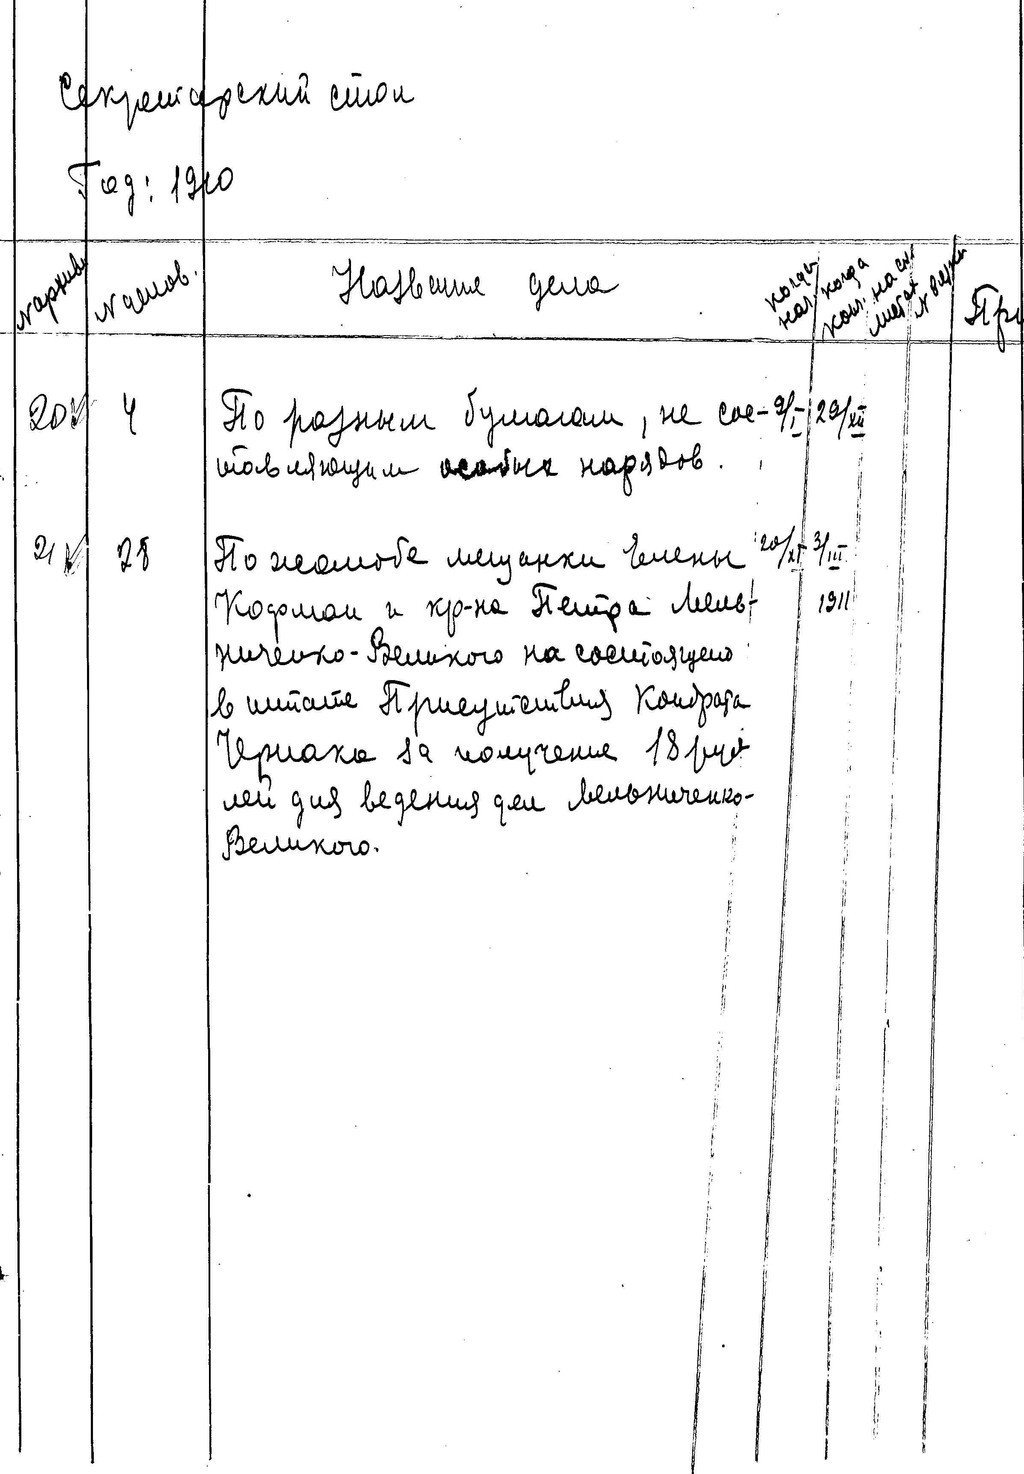 Секретарский стол
Год: 1910
N архив. N делов. Название дела когда нач. когда конч. на скольк. листах N вязки При
20 4 По разным бумагам, не сос- 9/I 29/XII
тавляющим особых нарядов.
21 28 По жалобе мещанки Елены 20/XI 3/III
Кофман и кр-на Петра Мель- 1911
ниченко-Великого на состоящего
в штате Присутствия Кондрата
Черпака за получение 18 руб
лей для ведения дел Мельниченко-
Великого.